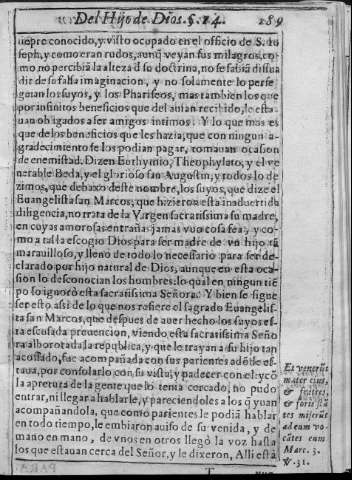 Del Hijo de Dios. §. 14. 189
uepre conocido, y visto ocupado en el officio de S. Io
seph, y como eran rudos, aunq̃ veyan sus milagros, co
mo no percibiã la alteza d̃ su doctrina, no se sabiã disua
dir de su falsa imaginacion, y no solamente lo perse
guian los suyos, y los Phariseos, mas tambien los que
por infinitos beneficios que del auian recibido, le esta
uan obligados a ser amigos intimos. Y lo que mas es
que de los beneficios que les hazia, que con ningun a-
gradecimiẽto se los podian pagar, tomauan ocasion
de enemistad. Dizen Eothymio, Theophylato, y el ve
nerable Beda, y el glorioso san Augustin, y todos lo de
zimos, que debaxo deste nombre, los suyos, que dize el
Euangelista san Marcos, que hizieron esta inaduertida
diligencia, no trata de la Virgen sacratissima su madre,
en cuyas amorosas entrañas jamas vuo cosa fea, y co-
mo a tal la escogio Dios para ser madre de vn hijo tã
marauilloso, y lleno de todo lo necessario para ser de-
clarado por hijo natural de Dios, aunque en esta oca-
sion lo desconocian los hombres: lo qual en ningun tiẽ
po lo ignorò esta sacratissima Señora. Y bien se sigue
ser esto assi: de lo que nos refiere el sagrado Euangelis-
ta san Marcos, que despues de auer hecho los suyos es-
ta escusada preuencion, viendo esta sacratissima Seño
ra alborotada la republica, y que le trayan a su hijo tan
acossado, fue acompañada con sus parientes adõde es-
taua, por consolarlo con su vista, y padecer con el: y cõ
la apretura de la gente que lo tenia cercado, no pudo
entrar, ni llegar a hablarle, y pareciendoles a los q̃ yuan
acompañandola, que como parientes le podiã hablar
en todo tiempo, le embiaron auiso de su venida, y de
mano en mano, de vnos en otros llegò la voz hasta
los que estauan cerca del Señor, y le dixeron, Alli està
Et venerũt
mater eius,
& fratres,
& foris stã
tes miserũt
ad eum vo-
cãtes eum
Marc. 3.
V. 31.